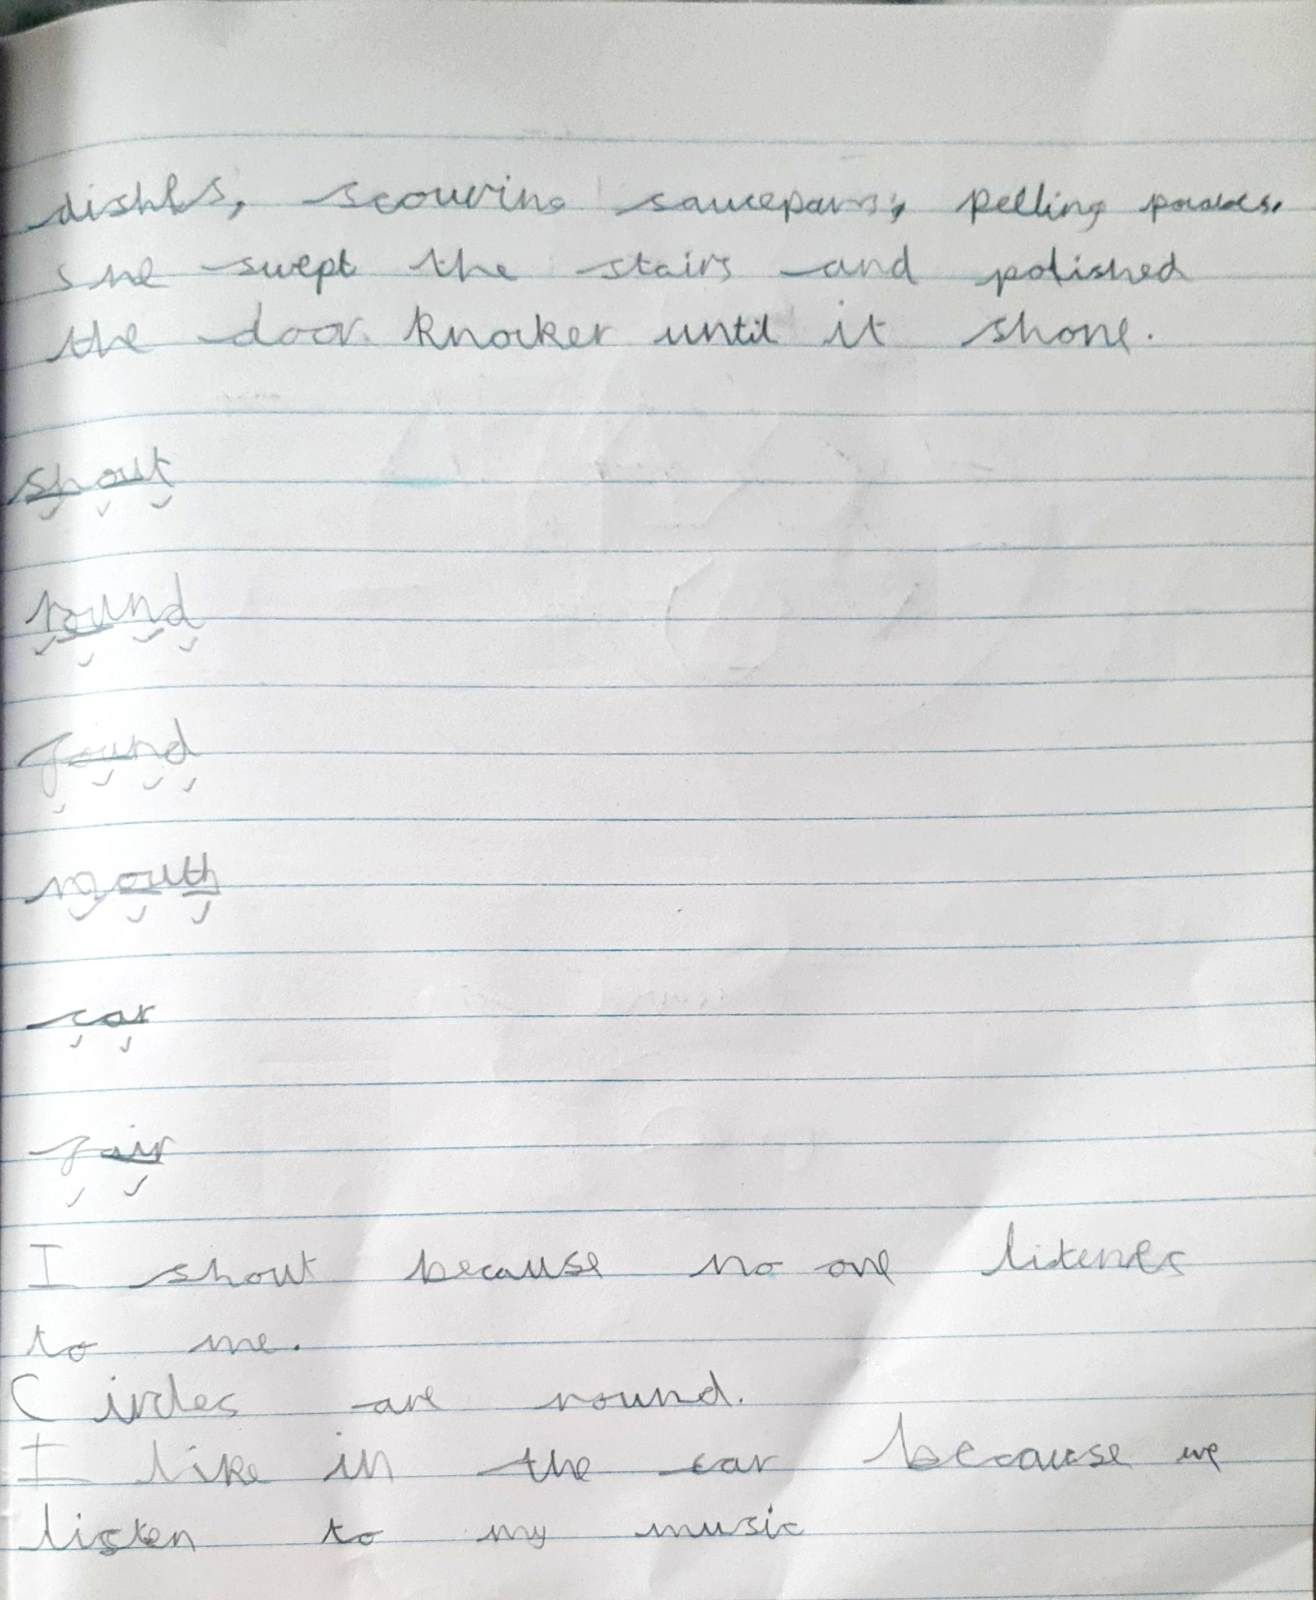 dishes, scouring saucepans, pelling potatoes.
she swept the stairs and polished
the door knocker until it shone.
shout
round
found
mouth
car
fair
I shout because no one listenes
to me.
Circles are round.
I like in the car because we
listen to my music